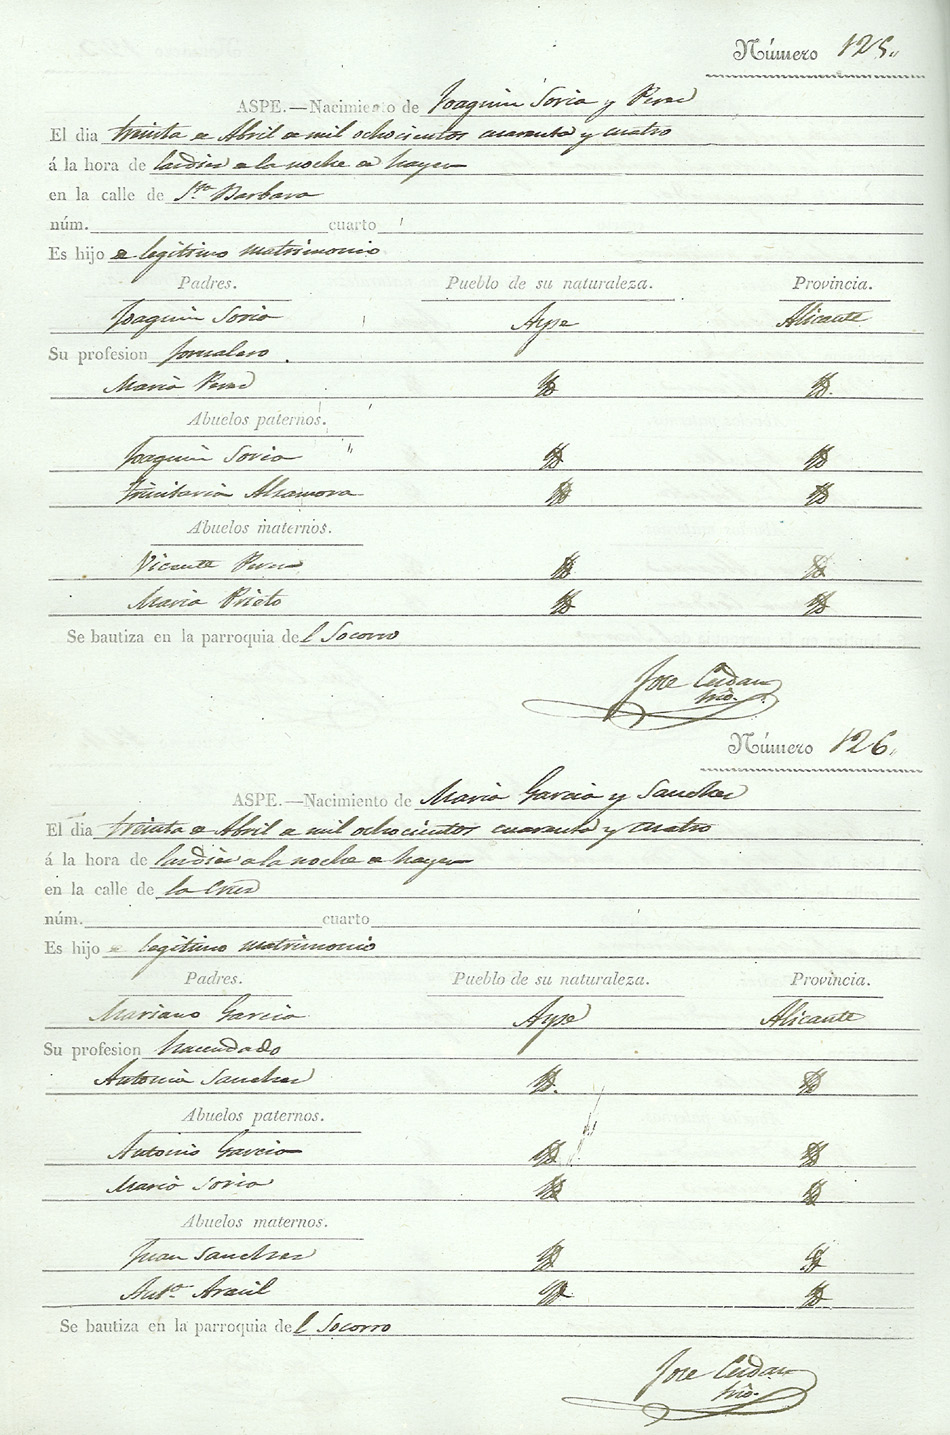 Número 125.
ASPE.—Nacimiento de Joaquin Soria y Perez
El dia treinta de Abril de mil ochocientos cuarenta y cuatro
á la hora de las diez de la noche de hayer
en la calle de Sta. Barbara
núm. cuarto
Es hijo de legitimo matrimonio
Padres. Pueblo de su naturaleza. Provincia.
Joaquin Soria Aspe Alicante
Su profesion Jornalero.
Maria Perez Yd Yd.
Abuelos paternos.
Joaquin Soria Yd Yd
Trinitaria Alzamora Yd Yd
Abuelos maternos.
Vicente Perez Yd Yd
Maria Prieto Yd Yd
Se bautiza en la parroquia del Socorro
Jose Cerdan
Srio.
Número 126.
ASPE.—Nacimiento de Maria Garcia y Sanchez
El dia treinta de Abril de mil ochocientos cuarenta y cuatro
á la hora de las diez de la noche de hayer
en la calle de la Cruz
núm. cuarto
Es hijo de legitimo matrimonio
Padres. Pueblo de su naturaleza. Provincia.
Mariano Garcia Aspe Alicante
Su profesion hacendado
Antonia Sanchez Yd. Yd
Abuelos paternos.
Antonio Garcia Yd Yd
Maria Soria Yd Yd
Abuelos maternos.
Juan Sanchez Yd Yd
Anta. Aracil Yd Yd
Se bautiza en la parroquia del Socorro
Jose Cerdan
Srio.